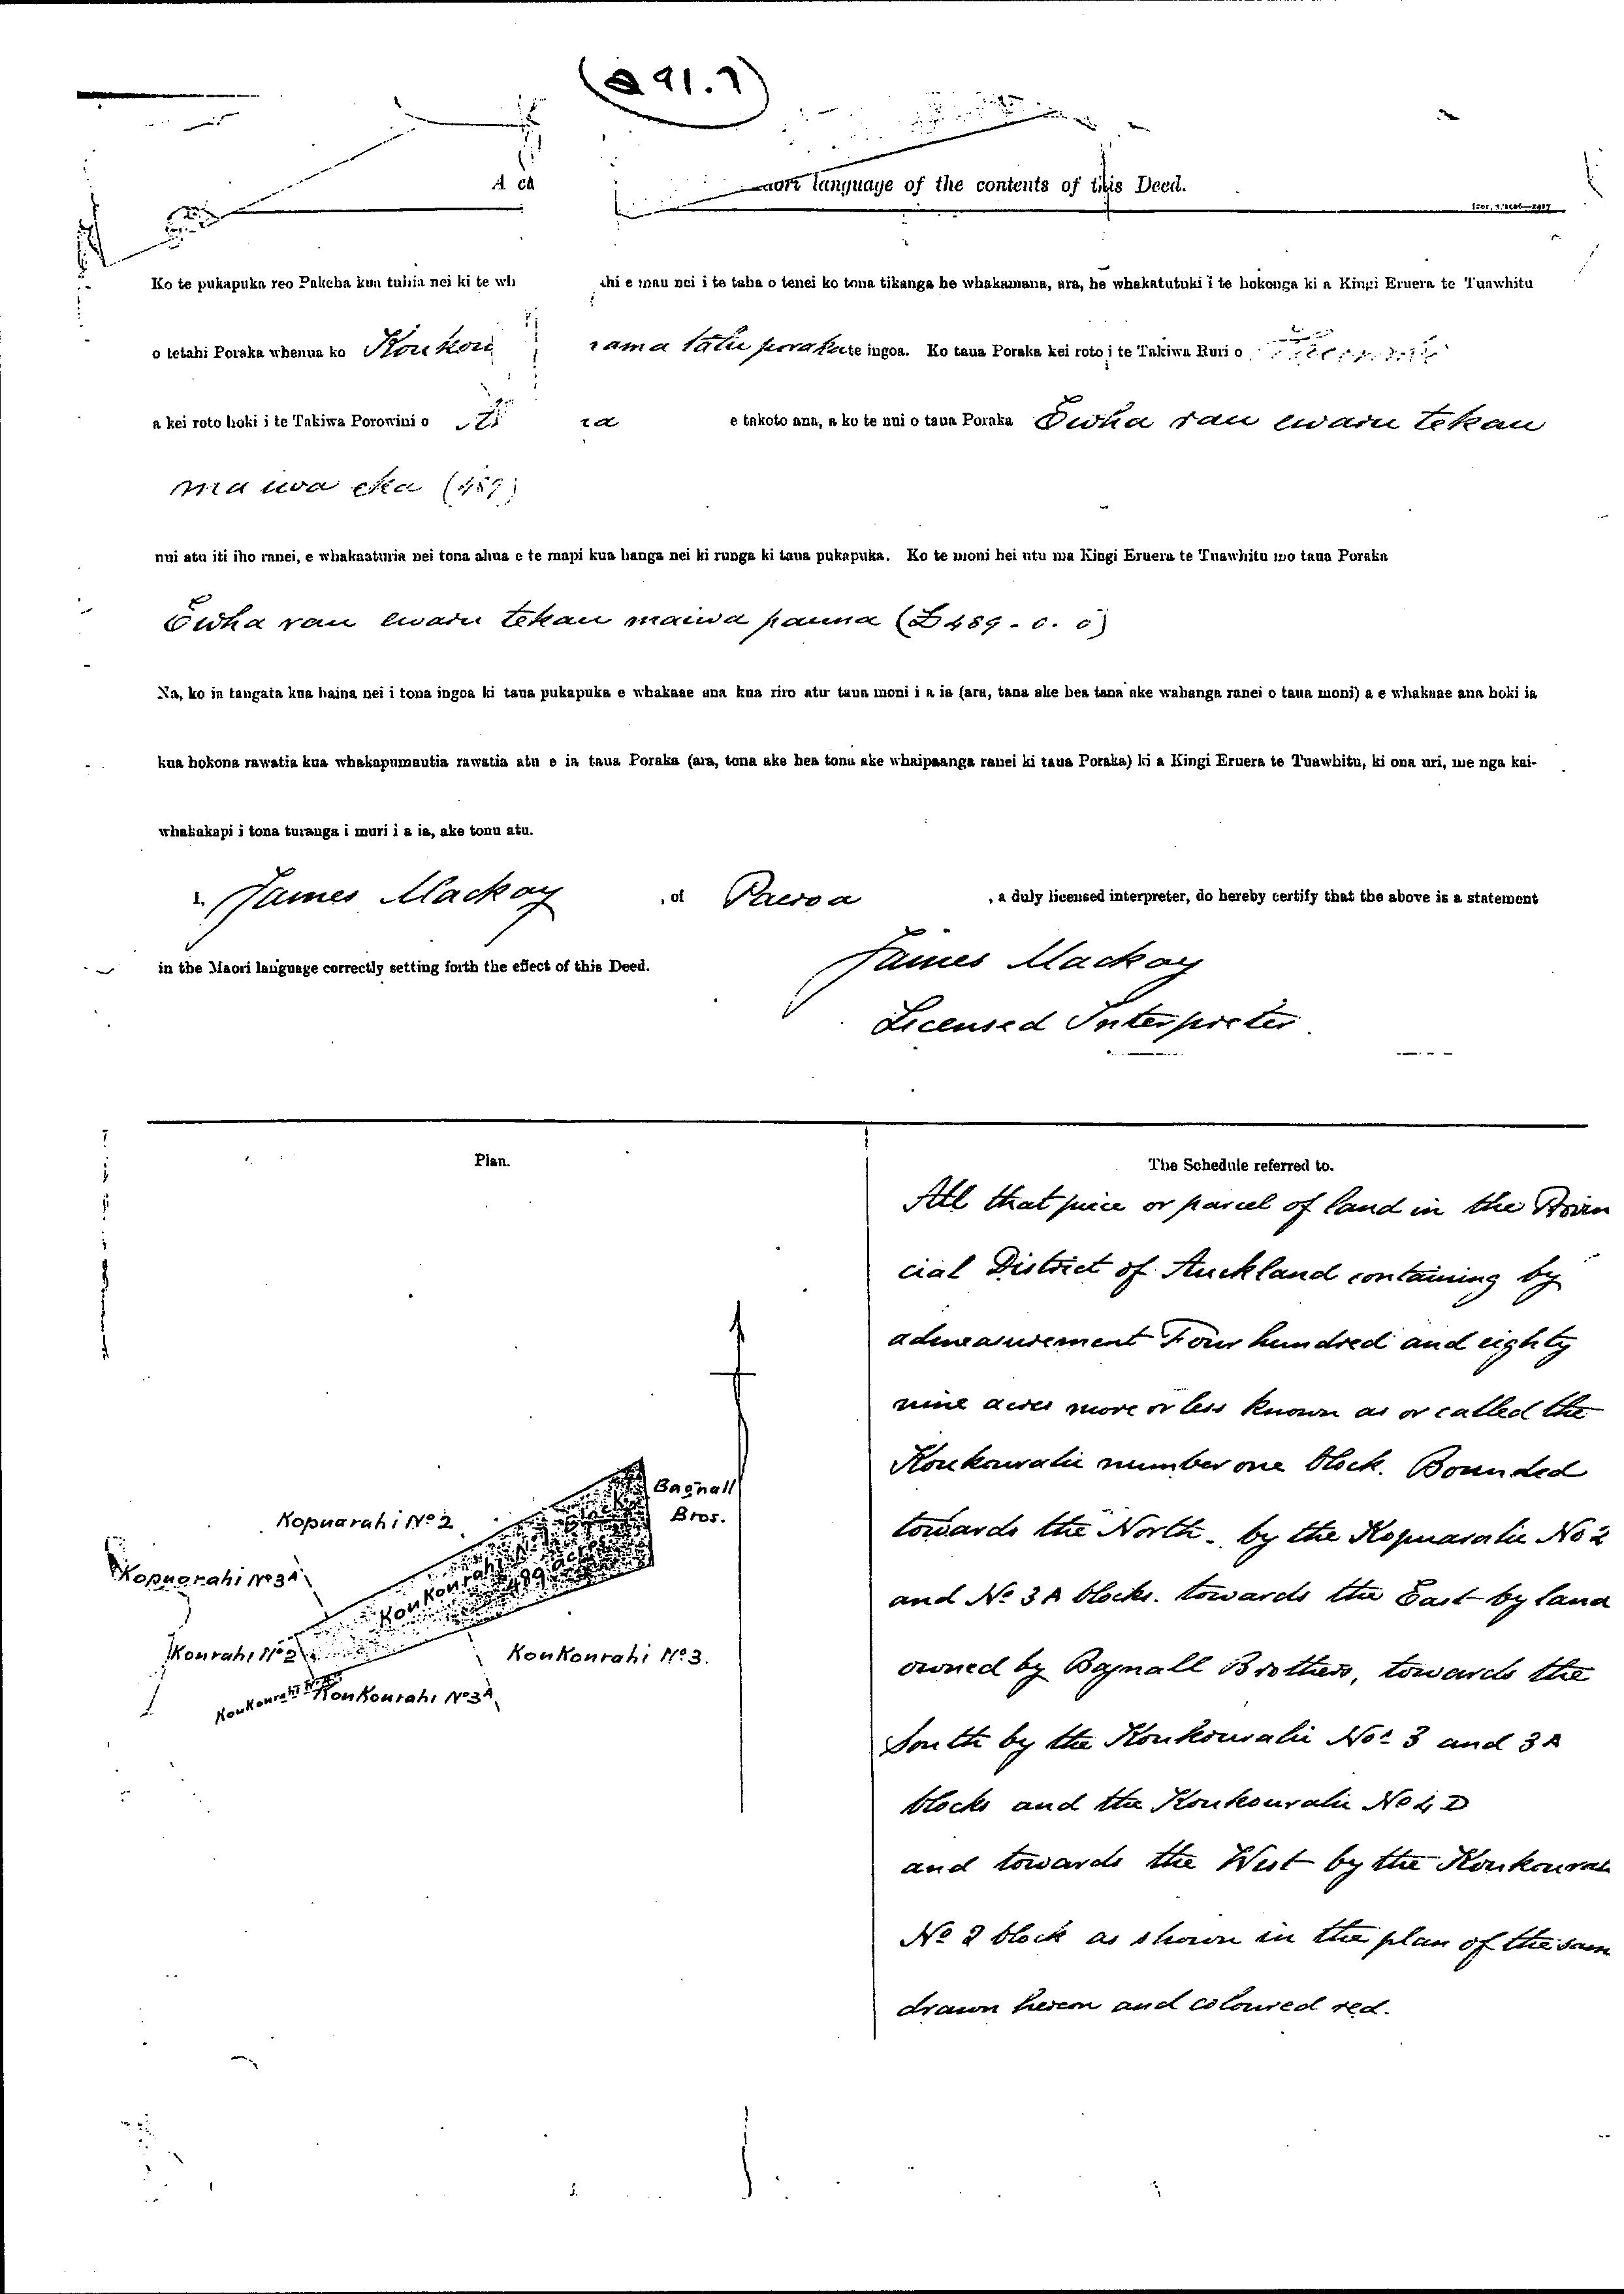 (Q 91.7)
aori language of the contents of this Deed.
Ko te pukapuka reo Pakeha kua tuhia nei ki te wh ahi e mau nei i te taha o tenei ko tona tikanga he whakamana, ara, he whakatutuki i te hokonga ki a Kingi Eruera te Tuawhitu
o tetahi Poraka whenua ko Koukou te ingoa. Ko taua Poraka kei roto i te Takiwa Ruri o
a kei roto hoki i te Takiwa Porowini o e takoto ana, a ko te nui o taua Poraka Ewha rau ewaru tekau
ma iwa eka (489)
nui atu iti iho ranei, e whakaaturia nei tona ahua e te mapi kua hanga nei ki runga ki taua pukapuka. Ko te moni hei utu ma Kingi Eruera te Tuawhitu mo taua Poraka
Ewha rau ewaru tekau maiwa pauna (£489 - 0. 0)
Na, ko ia tangata kua haina nei i tona ingoa ki taua pukapuka e whakaae ana kua riro atu taua moni i a ia (ara, tana ake hea tana ake wahanga ranei o taua moni) a e whakaae ana hoki ia
kua hokona rawatia kua whakapumautia rawatia atu e ia taua Poraka (ara, tona ake hea tona ake whaipaanga ranei ki taua Poraka) ki a Kingi Eruera te Tuawhitu, ki ona uri, me nga kai-
whakakapi i tona turanga i muri i a ia, ake tonu atu.
I, James Mackay, of Paeroa, a duly licensed interpreter, do hereby certify that the above is a statement
in the Maori language correctly setting forth the effect of this Deed.
James Mackay
Licensed Interpreter.
Plan.
Bagnall
Bros.
Kopuarahi No 2
Kopuarahi No 3A
Koukourahi No 1
489 acres
Kourahi No 2
Koukourahi No 3.
Koukourahi
Koukourahi No 3A
The Schedule referred to.
All that piece or parcel of land in the Provin
cial District of Auckland containing by
admeasurement Four hundred and eighty
nine acres more or less known as or called the
Koukourahi number one block. Bounded
towards the North - by the Kopuarahi No 2
and No 3A blocks. towards the East by land
owned by Bagnall Brothers, towards the
South by the Koukourahi Nos 3 and 3A
blocks and the Koukourahi No 4 D
and towards the West by the Koukourah
No 2 block as shown in the plan of the sam
drawn hereon and coloured red.